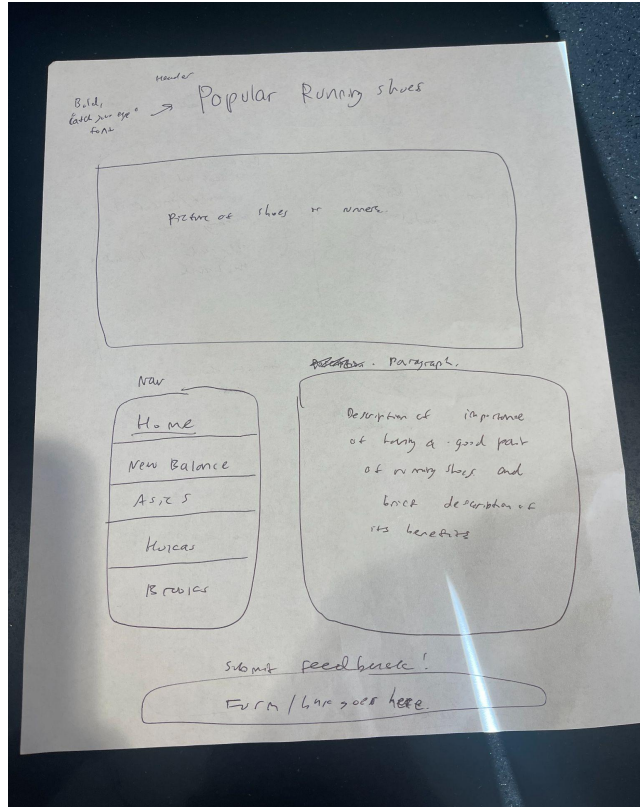 Header
Bold,
"catch your eye"
font
→ Popular Running shoes
Picture of shoes or runners.
Nav
Home
New Balance
Asics
Hokas
Brooks
Paragraph.
Description of importance
of having a good pair
of running shoes and
brief description of
its benefits
Submit feedback!
Form / link goes here.